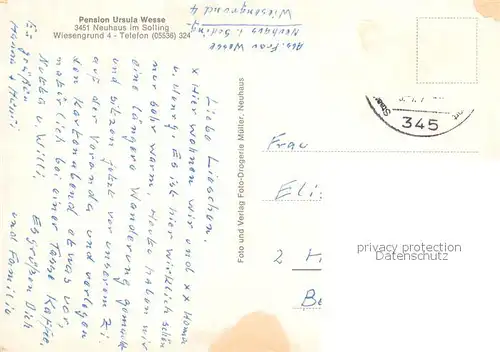 Pension Ursula Wesse
3451 Neuhaus im Solling
Wiesengrund 4 - Telefon (05536) 324
Abs. Frau Wesse
Neuhaus i. Solling
Wiesengrund 4
Liebe Lieschen.
x Hier wohnen wir und xx Homa
u. Henry. Es ist hier wirklich schön
nur sehr warm. Heute haben wir
eine längere Wanderung gemacht
und sitzen jetzt vor unserem Zi.
auf der Veranda und verlegen
den Kartenabend etwas vor,
natürlich bei einer Tasse Kaffee.
Es grüßen Dich
Willi.
und Familie
Es grüßen
Foto und Verlag Foto-Drogerie Müller, Neuhaus
345
Frau
Eli
2
Be
privacy protection
AnsichtsKarten-Center.de